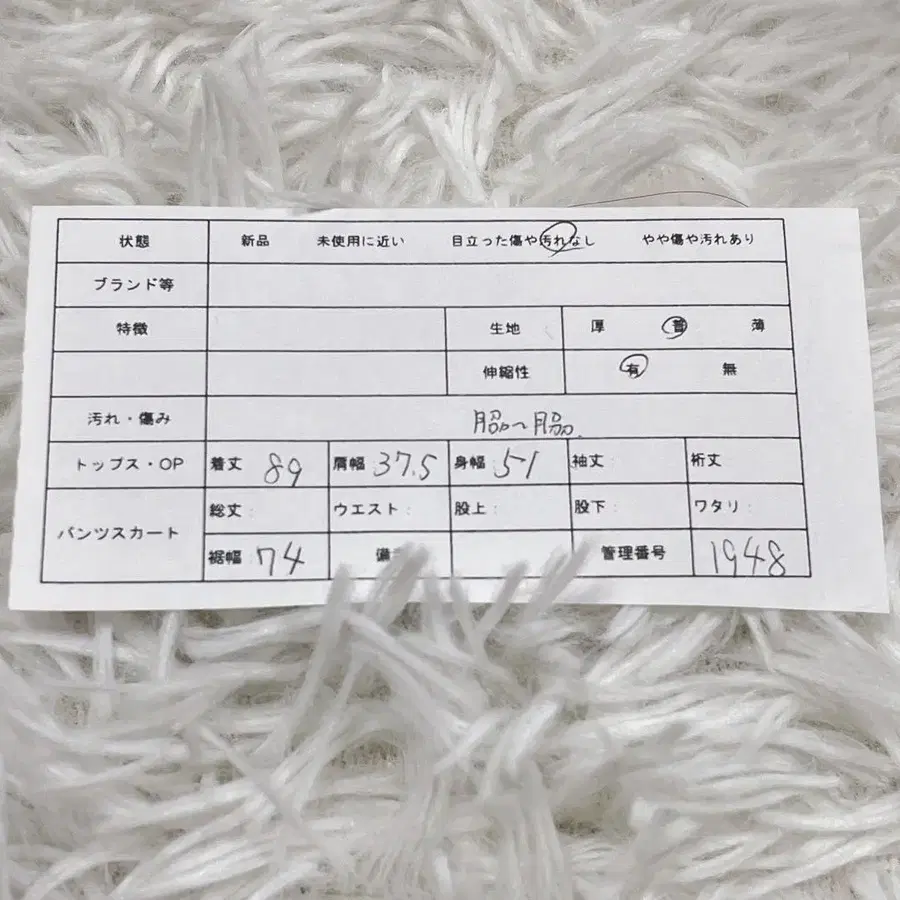 状態 新品 未使用に近い 目立った傷や汚れなし やや傷や汚れあり
ブランド等
特徴 生地 厚 普 薄
伸縮性 有 無
汚れ・傷み 脇〜脇
トップス・OP 着丈 89 肩幅: 37.5 身幅: 51 袖丈: 裄丈:
パンツスカート 総丈: ウエスト: 股上: 股下: ワタリ:
裾幅: 74 備 管理番号 1948